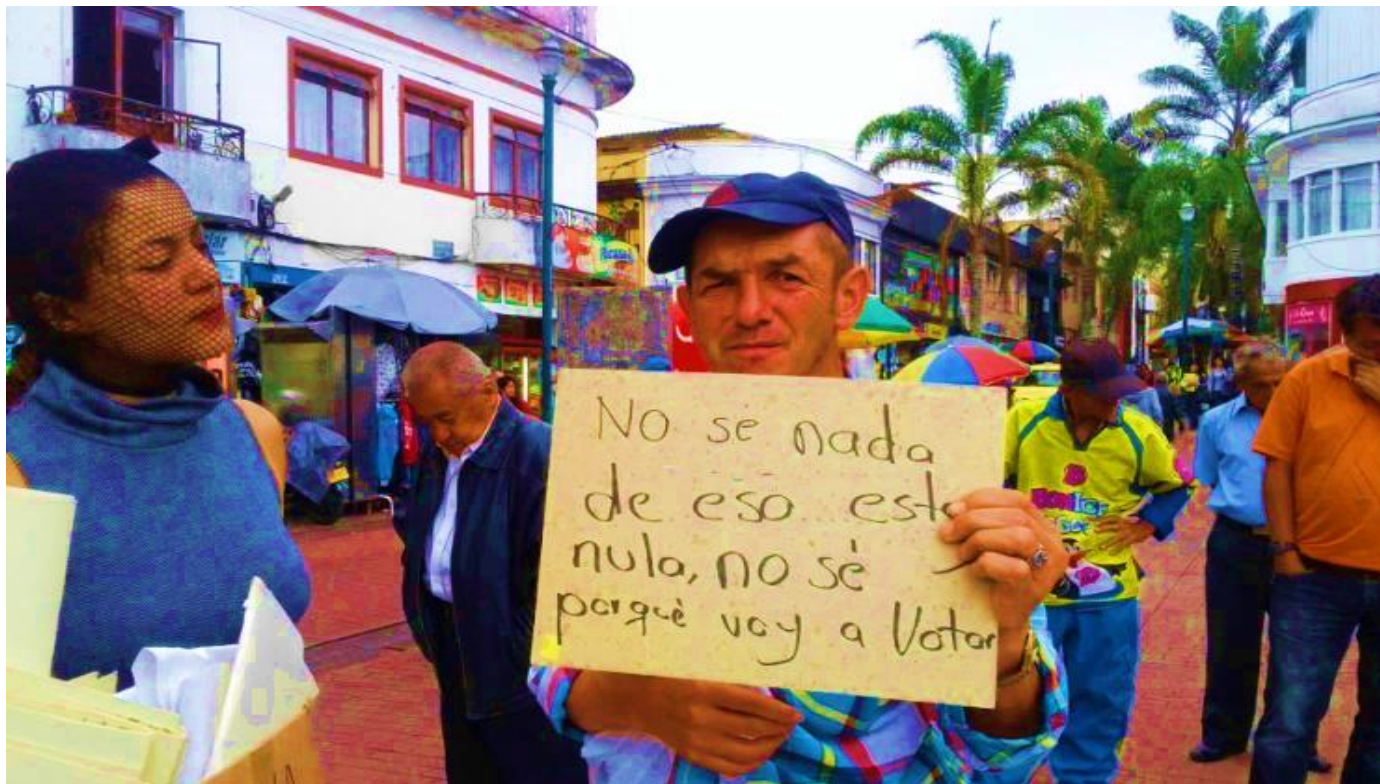 No se nada
de eso esto
nula, no sé
porqué voy a Votar